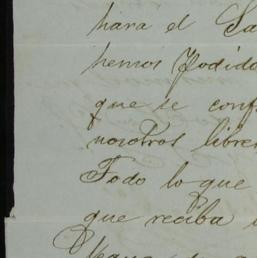 hara el Sa
hemos Podido
que se conf
nosotros libre
Todo lo que
que reciba